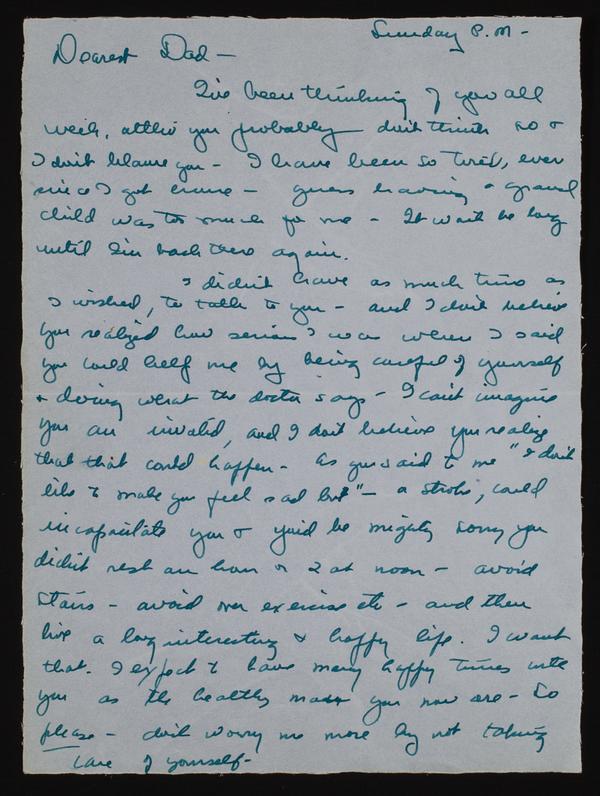 Sunday P.M -
Dearest Dad -
I've been thinking of you all
week, altho you probably don't think so &
I don't blame you - I have been so tired, ever
since I got home - guess having a grand
child was too much for me - It won't be long
until I'm back there again.
I didn't have as much time as
I wished, to talk to you - and I don't believe
you realized how serious I was when I said
you could help me by being careful of yourself
& doing what the doctor says - I can't imagine
you an invalid, and I don't believe you realize
that that could happen - As you said to me "I don't
like to make you feel sad but" - a stroke, could
incapacitate you & you'd be mighty sorry you
didn't rest an hour or 2 at noon - avoid
stairs - avoid over exercise etc - and then
live a long interesting & happy life. I want
that. I expect to have many happy times with
you as the healthy man you now are - So
please - don't worry me more by not taking
care of yourself -